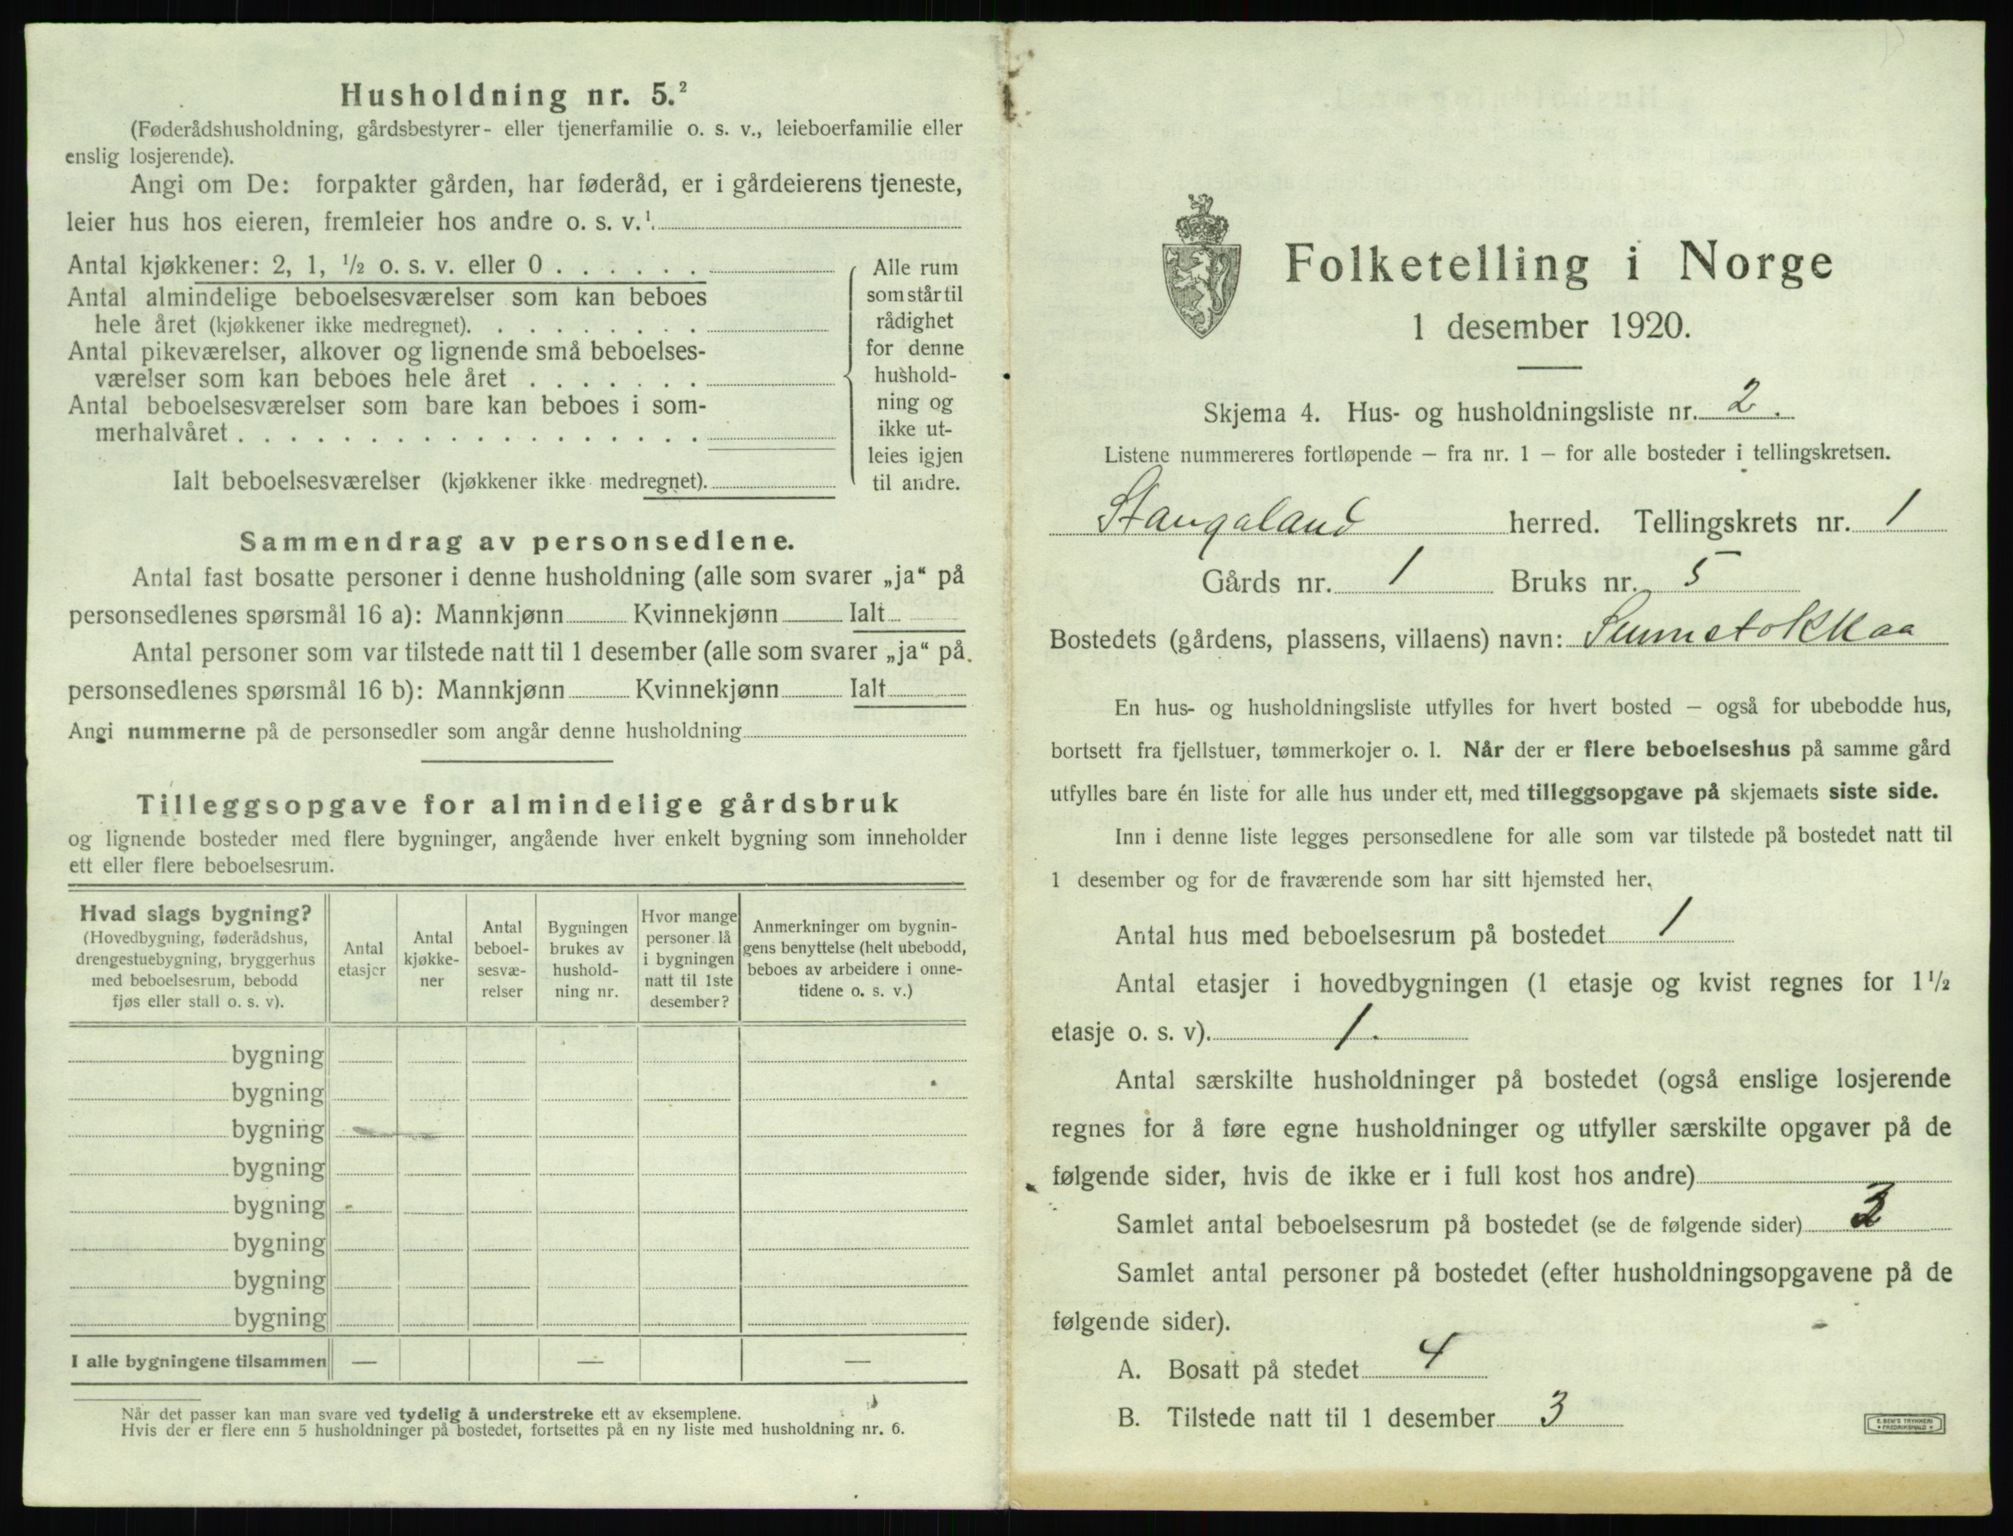 Husholdning nr. 5.²
(Føderådshusholdning, gårdsbestyrer- eller tjenerfamilie o. s. v., leieboerfamilie eller
enslig losjerende).
Angi om De: forpakter gården, har føderåd, er i gårdeierens tjeneste,
leier hus hos eieren, fremleier hos andre o. s. v.¹
Antal kjøkkener: 2, 1, ½ o. s. v. eller 0 . . . . . .
Antal almindelige beboelsesværelser som kan beboes
hele året (kjøkkener ikke medregnet). . . . . . . . .
Antal pikeværelser, alkover og lignende små beboelses-
værelser som kan beboes hele året . . . . . . .
Antal beboelsesværelser som bare kan beboes i som-
merhalvåret . . . . . . . . . . . . . . . . . .
Ialt beboelsesværelser (kjøkkener ikke medregnet).
Alle rum
som står til
rådighet
for denne
hushold-
ning og
ikke ut-
leies igjen
til andre.
Sammendrag av personsedlene.
Antal fast bosatte personer i denne husholdning (alle som svarer „ja“ på
personsedlenes spørsmål 16 a): Mannkjønn Kvinnekjønn Ialt
Antal personer som var tilstede natt til 1 desember (alle som svarer „ja“ på
personsedlenes spørsmål 16 b): Mannkjønn Kvinnekjønn Ialt
Angi nummerne på de personsedler som angår denne husholdning
Tilleggsopgave for almindelige gårdsbruk
og lignende bosteder med flere bygninger, angående hver enkelt bygning som inneholder
ett eller flere beboelsesrum.
Hvad slags bygning?
(Hovedbygning, føderådshus,
drengestuebygning, bryggerhus
med beboelsesrum, bebodd
fjøs eller stall o. s. v).
Antal
etasjer
Antal
kjøkke-
ner
Antal
beboel-
sesvæ-
relser
Bygningen
brukes av
hushold-
ning nr.
Hvor mange
personer lå
i bygningen
natt til 1ste
desember?
Anmerkninger om bygnin-
gens benyttelse (helt ubebodd,
beboes av arbeidere i onne-
tidene o. s. v.)
bygning
bygning
bygning
bygning
bygning
bygning
bygning
bygning
I alle bygningene tilsammen — — —
Når det passer kan man svare ved tydelig å understreke ett av eksemplene.
Hvis der er flere enn 5 husholdninger på bostedet, fortsettes på en ny liste med husholdning nr. 6.
Folketelling i Norge
1 desember 1920.
Skjema 4. Hus- og husholdningsliste nr. 2.
Listene nummereres fortløpende – fra nr. 1 – for alle bosteder i tellingskretsen.
Stangaland herred. Tellingskrets nr. 1
Gårds nr. 1 Bruks nr. 5
Bostedets (gårdens, plassens, villaens) navn:
En hus- og husholdningsliste utfylles for hvert bosted – også for ubebodde hus,
bortsett fra fjellstuer, tømmerkojer o. l. Når der er flere beboelseshus på samme gård
utfylles bare én liste for alle hus under ett, med tilleggsopgave på skjemaets siste side.
Inn i denne liste legges personsedlene for alle som var tilstede på bostedet natt til
1 desember og for de fraværende som har sitt hjemsted her.
Antal hus med beboelsesrum på bostedet 1
Antal etasjer i hovedbygningen (1 etasje og kvist regnes for 1½
etasje o. s. v). 1.
Antal særskilte husholdninger på bostedet (også enslige losjerende
regnes for å føre egne husholdninger og utfyller særskilte opgaver på de
følgende sider, hvis de ikke er i full kost hos andre)
Samlet antal beboelsesrum på bostedet (se de følgende sider)
Samlet antal personer på bostedet (efter husholdningsopgavene på de
følgende sider).
A. Bosatt på stedet 4
B. Tilstede natt til 1 desember 3